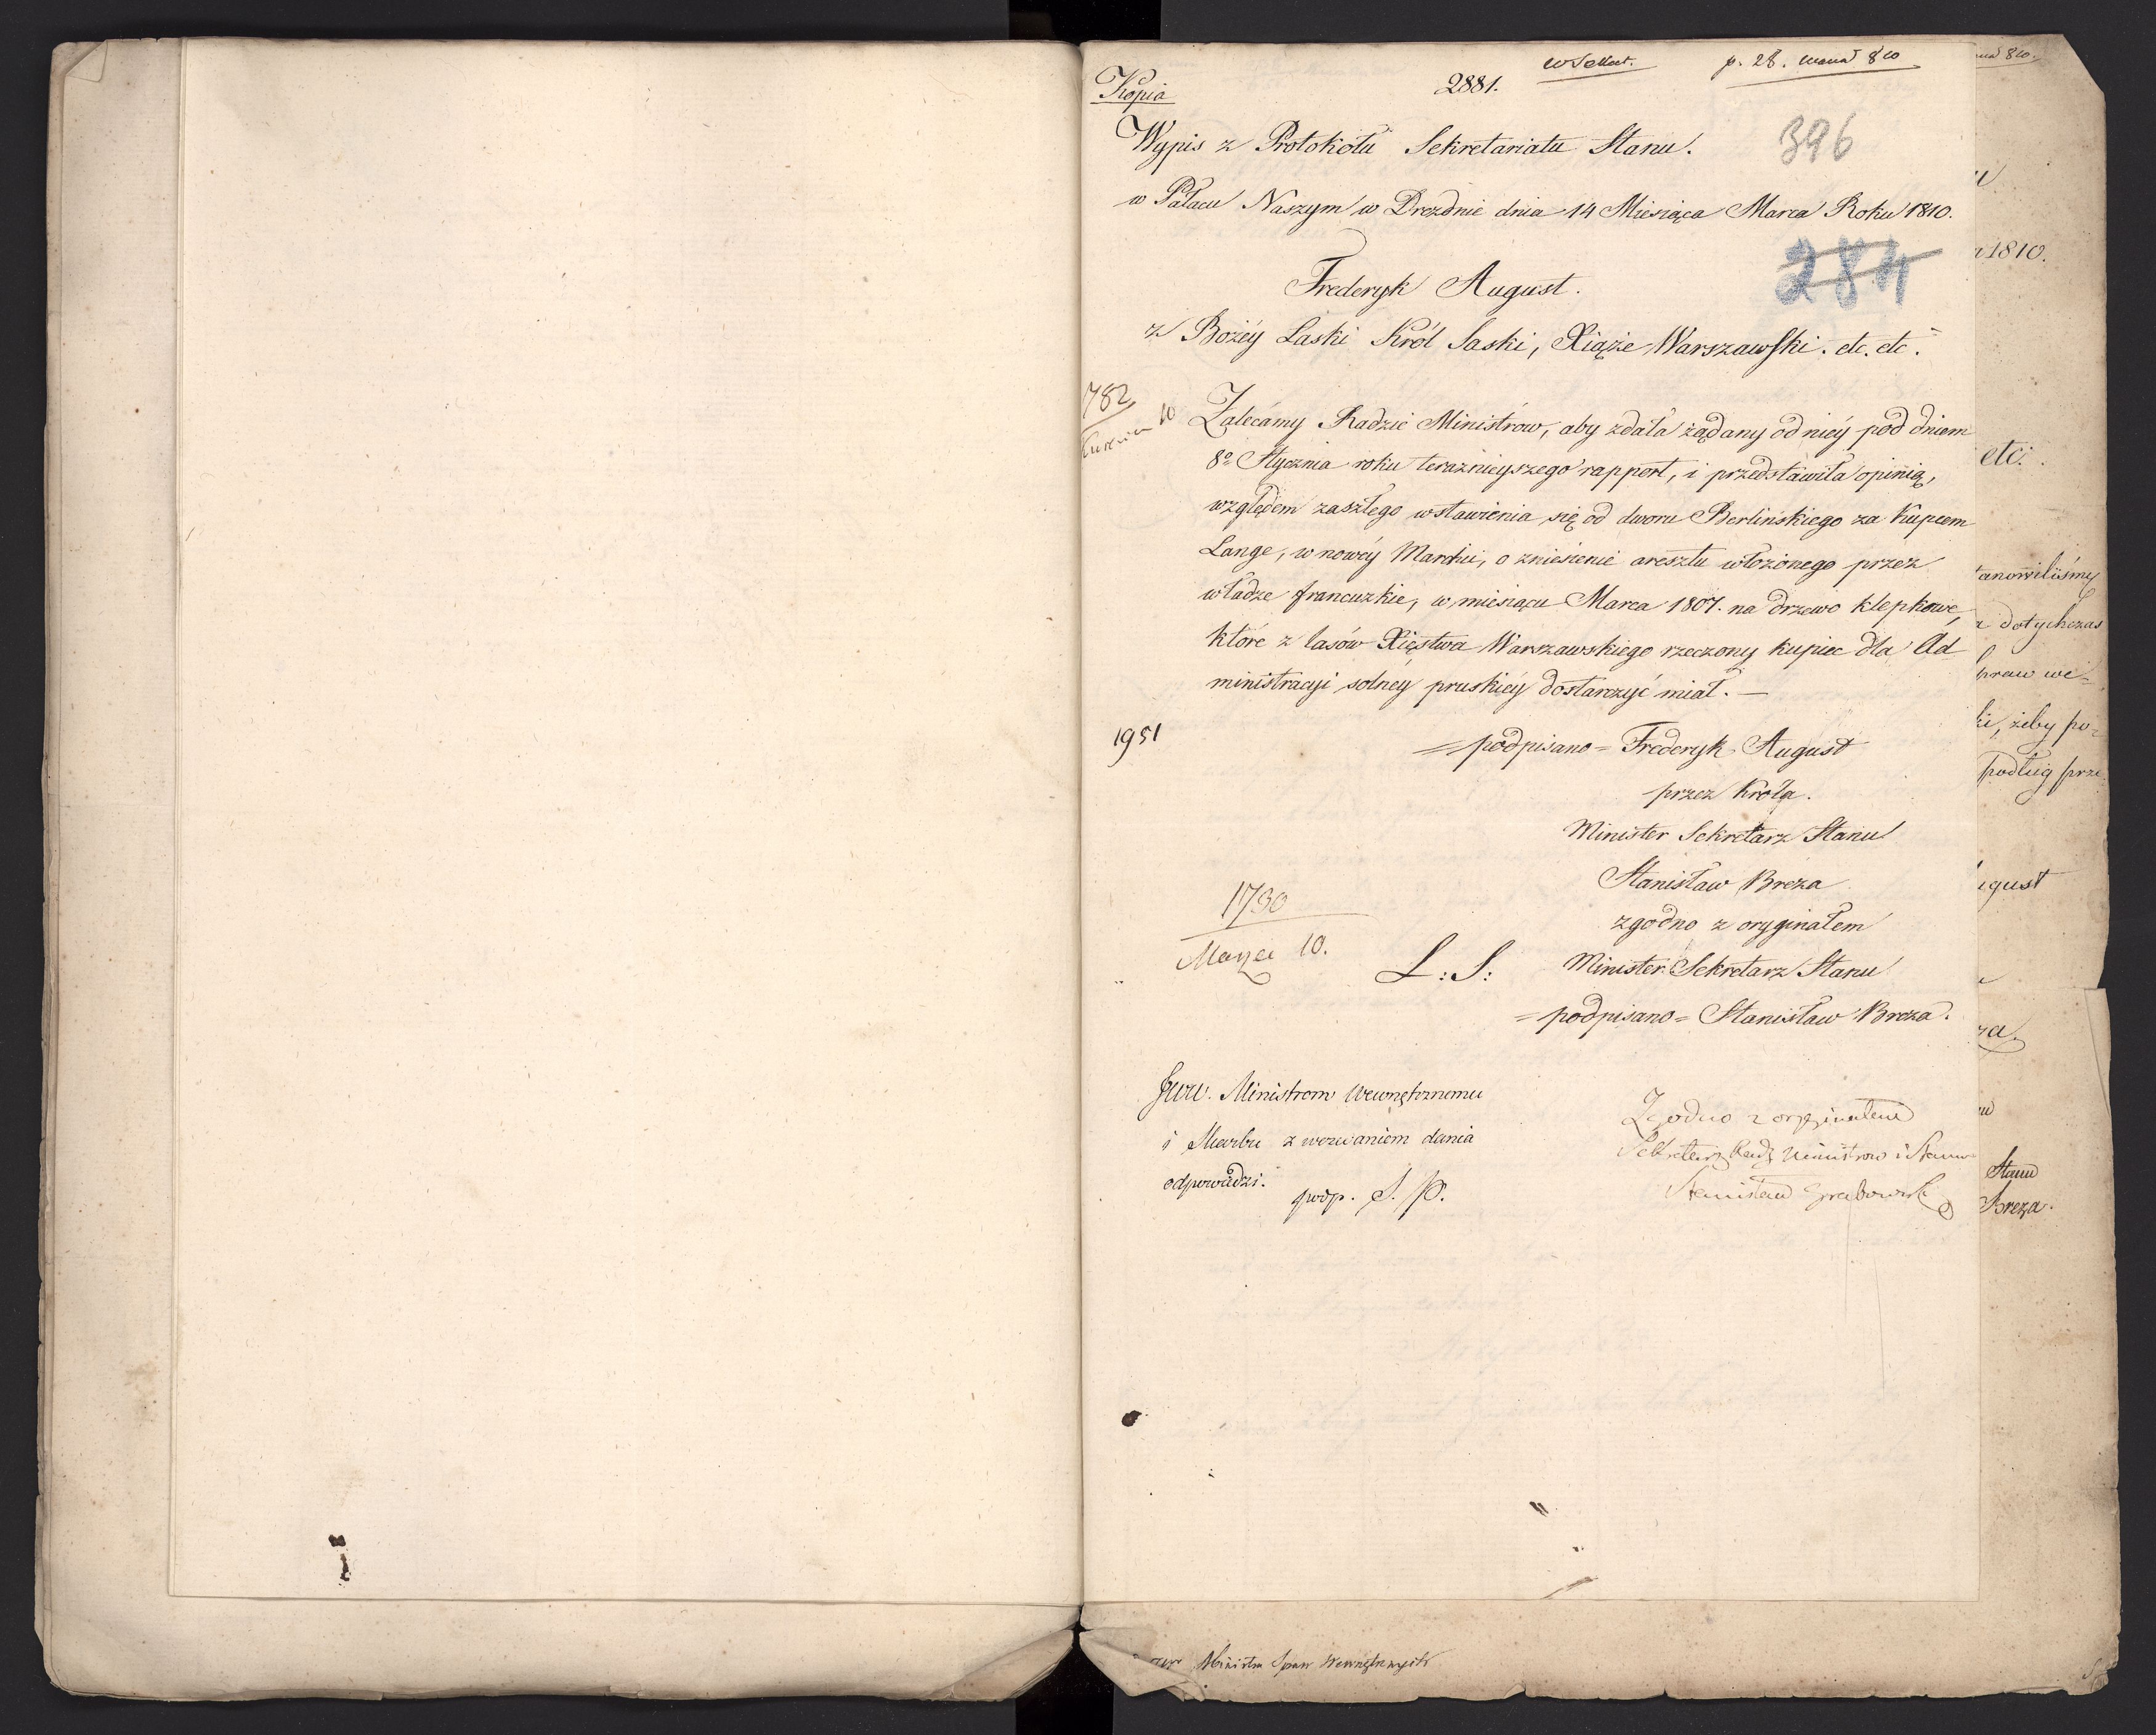 Kopia
2881.
p. 28. marca 810
Wypis z Protokołu Sekretariatu Stanu.
396
w Pałacu Naszym w Dreźnie dnia 14 Miesiąca Marca Roku 1810.
284
Frederyk August.
z Bożéy Łaski Król Saski, Xiąże Warszawski. etc. etc.
782
10
Zalecamy Radzie Ministrów, aby zdała żądany od niéy pod dniem
8º Stycznia roku teraznieyszego rapport, i przedstawiła opinią,
względem zaszłego wstawienia się od dworu Berlińskiego za Kupcem
Lange, w nowéy Marchii, o zniesienie aresztu włożonego przez
władze francuzkie, w miesiącu Marca 1807. na drzewo klepkowe,
które z lasów Xięstwa Warszawskiego rzeczony kupiec dla Ad
ministracyi solnéy pruskiéy dostarczyć miał. —
1951
= podpisano = Frederyk August
przez Króla.
Minister Sekretarz Stanu
Stanisław Breza
zgodno z oryginałem
1790
Marzec 10.
L: S: Minister Sekretarz Stanu
= podpisano = Stanisław Breza.
JWW. Ministrom Wewnętrznemu
i Skarbu z wezwaniem dania
odpowiedzi.
podp. S. P.
Zgodno z oryginałem
Sekretarz Rady Ministrow i Stanu
Stanisław Grabowski
Ministra Spraw Wewnętrznych
1810.
etc.
anowiliśmy
dotychczas
praw we=
ki, żeby po=
podług prze
gust
za.
Stanu
Breza.